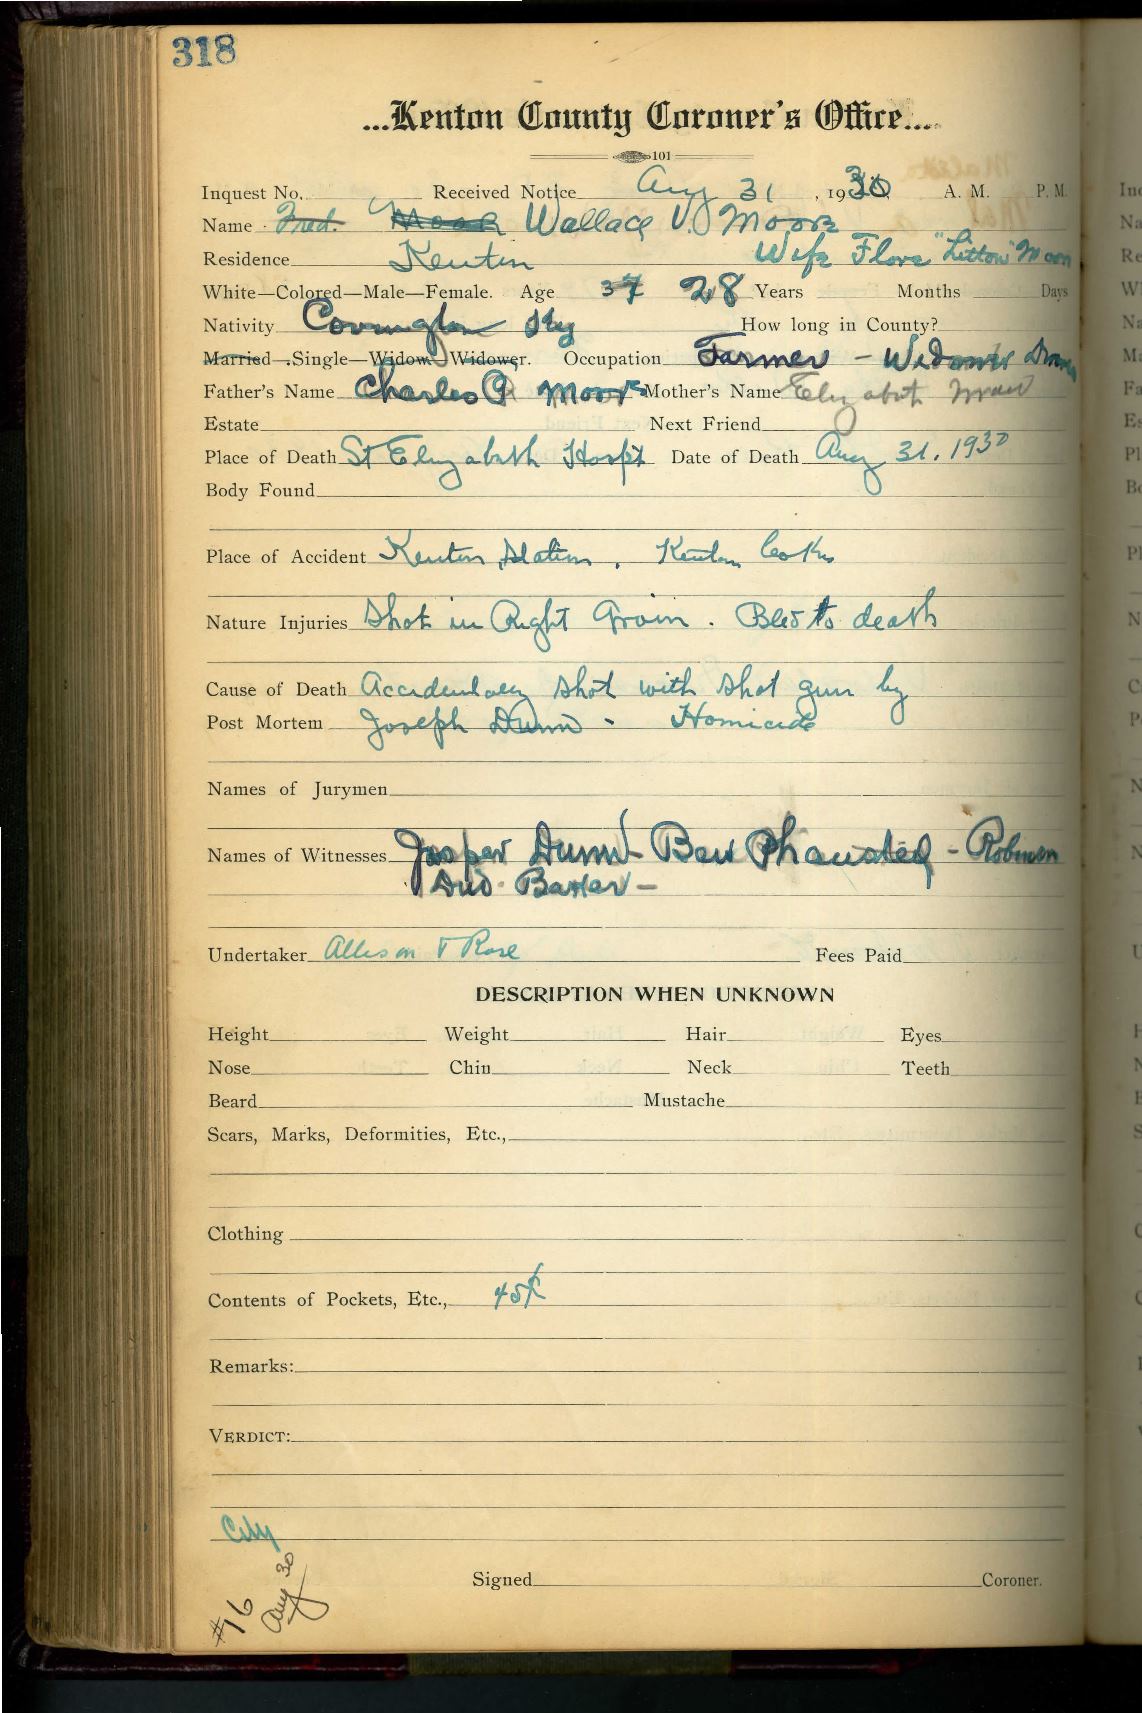 318
...Kenton County Coroner's Office...
101
Inquest No. Received Notice Aug 31, 1930 A. M. P. M.
Name Fred. Moore Wallace V. Moore
Residence Kenton Wife Flora "Litton" Moore
White—Colored—Male—Female. Age 37 28 Years Months Days
Nativity Covington Ky How long in County?
Married .Single—Widow Widower. Occupation Farmer - Widower
Father's Name Charles Moore Mother's Name Elizabeth
Estate Next Friend
Place of Death St Elizabeth Hospt Date of Death Aug 31. 1930
Body Found
Place of Accident Kenton Station. Kenton Co Ky
Nature Injuries Shot in Right Groin. Bled to death
Cause of Death Accidentaly shot with shot gun by
Post Mortem Joseph Dunn - Homicide
Names of Jurymen
Names of Witnesses Jasper Dunn - Ben -
-
Undertaker Allison & Rose Fees Paid
DESCRIPTION WHEN UNKNOWN
Height Weight Hair Eyes
Nose Chin Neck Teeth
Beard Mustache
Scars, Marks, Deformities, Etc.,
Clothing
Contents of Pockets, Etc., 45¢
Remarks:
VERDICT:
City
Signed Coroner.
#16
Aug 30